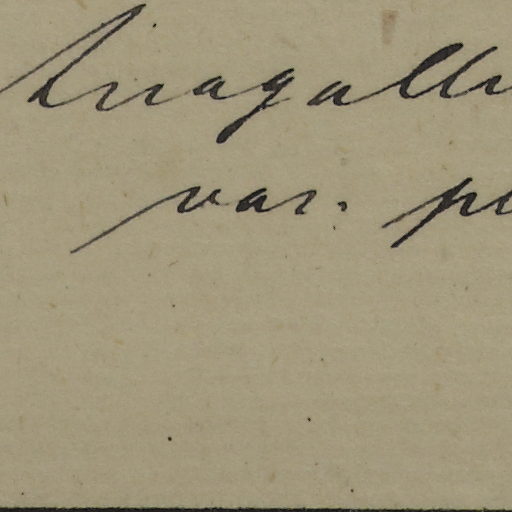 Anagalli
var. p